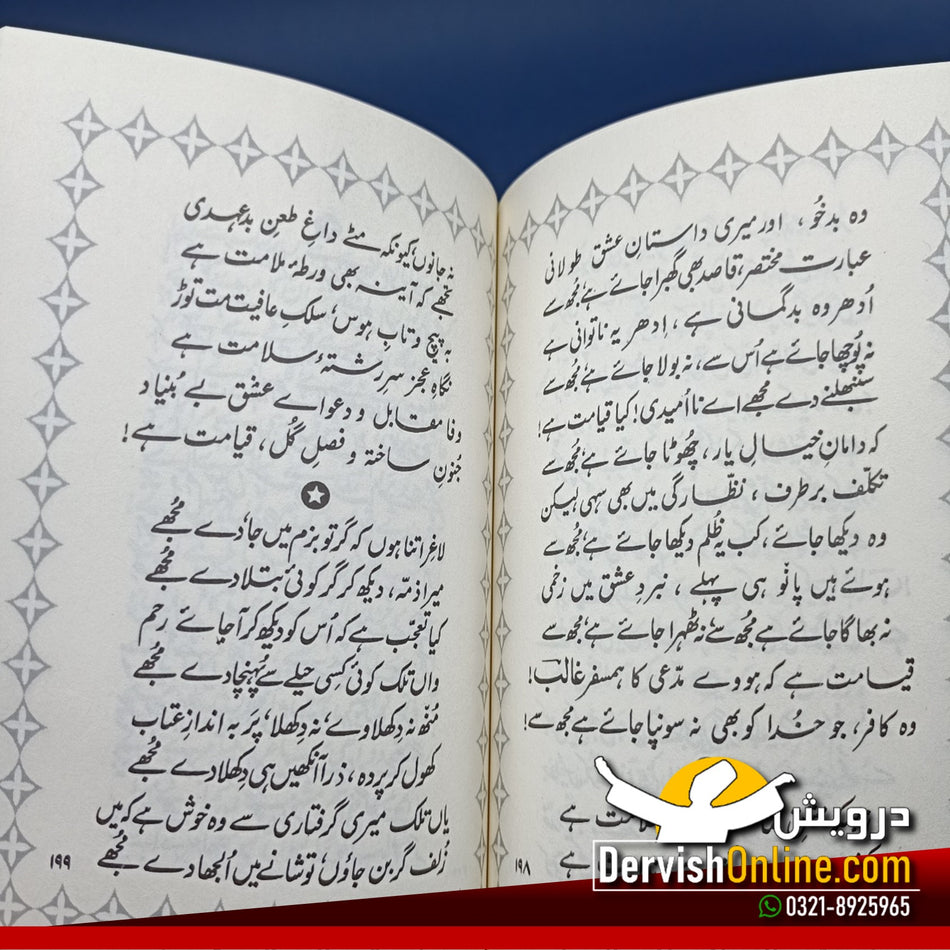 وہ بدخُو، اور میری داستانِ عشق طولانی
عبارت مختصر، قاصد بھی گھبرا جائے ہے، مُجھ سے
اُدھر وہ بدگمانی ہے، اِدھر یہ ناتوانی ہے
نہ پُوچھا جائے ہے اُس سے، نہ بولا جائے ہے، مُجھ سے
سنبھلنے دے مُجھے اے نااُمیدی! کیا قیامت ہے!
کہ دامانِ خیالِ یار، چھُوٹا جائے ہے، مُجھ سے
تکلّف برطرف، نظّارگی میں بھی سہی لیکن
وہ دیکھا جائے، کب یہ ظُلم دیکھا جائے ہے، مُجھ سے
ہوئے ہیں پانْو ہی پہلے، نبردِ عشق میں زخمی
نہ بھاگا جائے ہے مُجھ سے، نہ ٹھہرا جائے ہے، مُجھ سے
قیامت ہے کہ ہووے مدّعی کا ہمسفر غالبؔ!
وہ کافر، جو خُدا کو بھی نہ سونپا جائے ہے مُجھ سے!
ملامت ہے
ہے
۱۹۸
نہ جانوں، کیونکہ مٹے داغِ طعنِ بدعہدی
تجھے کہ آینہ بھی ورطۂ ملامت ہے
بہ پیچ و تابِ ہوس، سلکِ عافیت مت توڑ
نگاہِ عجز سرِ رشتۂ سلامت ہے
وفا مقابل و دعواے عشق بے بُنیاد
جُنونِ ساختہ و فصلِ گُل، قیامت ہے!
لاغر اتنا ہوں کہ گر تو بزم میں جا دے مُجھے
میرا ذمّہ، دیکھ کر گر کوئی بتلا دے مُجھے
کیا تعجّب ہے کہ اُس کو دیکھ کر آجائے رحم
واں تلک کوئی کسِی حیلے سے پُہنچا دے مُجھے
مُنْھ نہ دکھلاوے، نہ دِکھلا، پَر بہ اندازِ عتاب
کھول کر پردہ، ذرا آنکھیں ہی دِکھلا دے مُجھے
یاں تلک میری گرفتاری سے وہ خوش ہے کہ میں
زُلف گر بن جاؤں، تو شانے میں اُلجھا دے مُجھے
۱۹۹
درویش
DervishOnline.com
0321-8925965